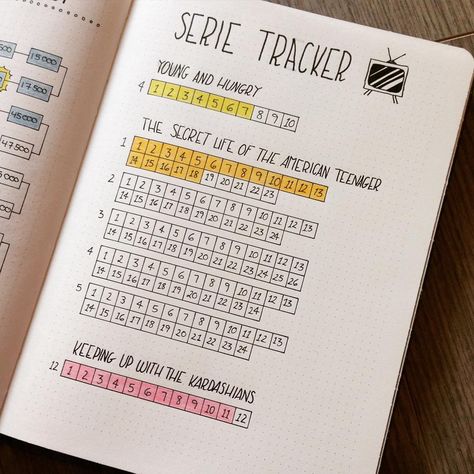 15 000
17 500
45 000
47.500
SERIE TRACKER
YOUNG AND HUNGRY
4 1 2 3 4 5 6 7 8 9 10
THE SECRET LIFE OF THE AMERICAN TEENAGER
1 1 2 3 4 5 6 7 8 9 10 11 12 13
14 15 16 17 18 19 20 21 22 23
2 1 2 3 4 5 6 7 8 9 10 11 12 13
14 15 16 17 18 19 20 21 22 23 24
3 1 2 3 4 5 6 7 8 9 10 11 12 13
14 15 16 17 18 19 20 21 22 23 24 25 26
4 1 2 3 4 5 6 7 8 9 10 11 12 13
14 15 16 17 18 19 20 21 22 23 24
5 1 2 3 4 5 6 7 8 9 10 11 12 13
14 15 16 17 18 19 20 21 22 23 24
KEEPING UP WITH THE KARDASHIANS
12 1 2 3 4 5 6 7 8 9 10 11 12